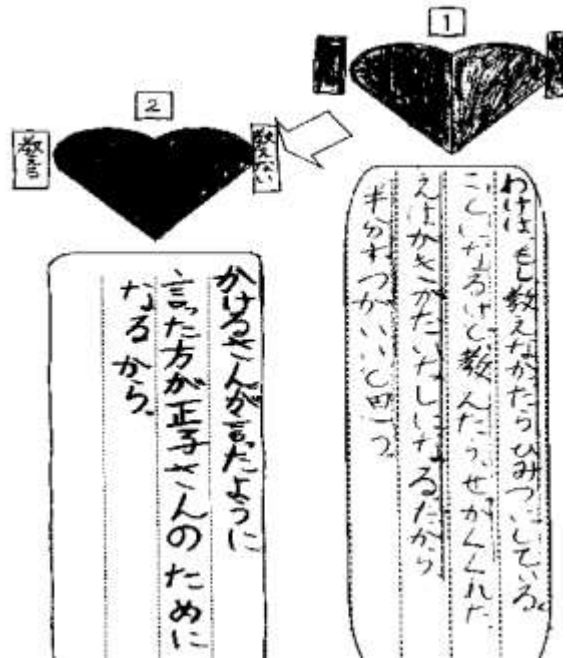 1
わけは、もし教えなかったらひみつにしている
ことになるけど、教えたら、せがくくれた
えはがきがだいなしになるだから
半分ずつがいいと思う。
2
教えない
教える
かけるさんが言たように
言った方が正子さんのために
なるから。